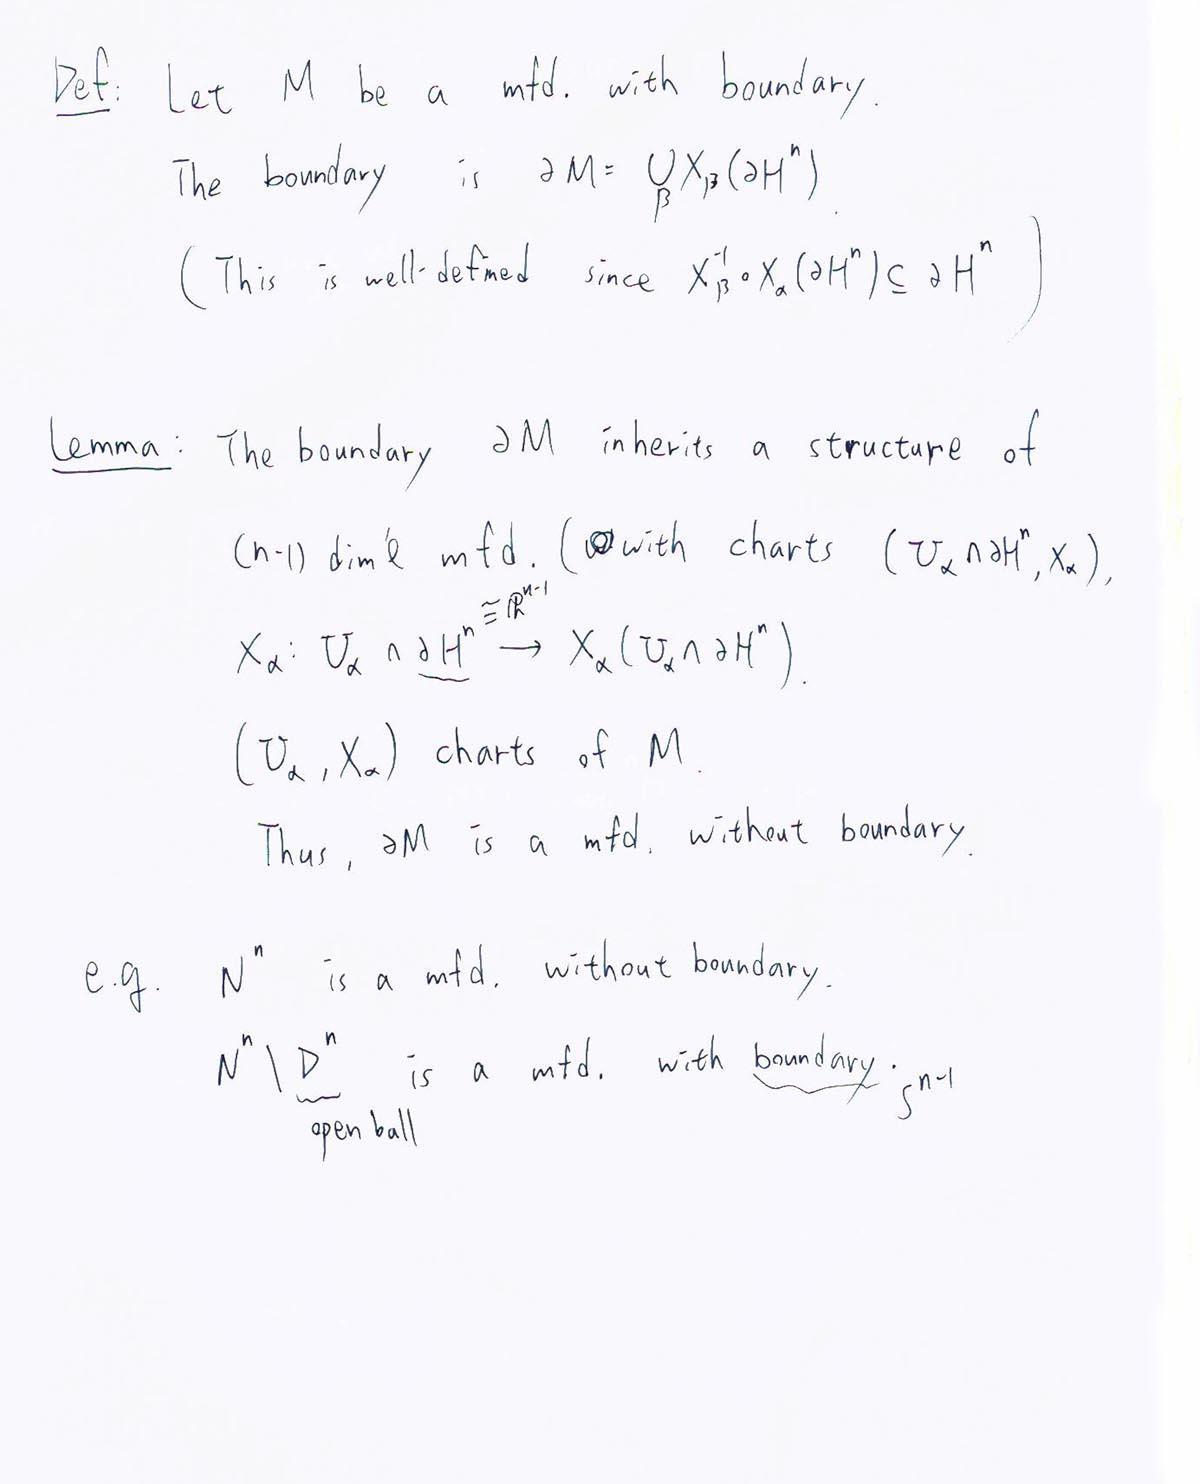 Def: Let M be a mfd. with boundary.
The boundary is ∂M = ⋃_β X_β(∂H^n).
(This is well-defined since X_β^{-1} ∘ X_α(∂H^n) ⊆ ∂H^n)
Lemma: The boundary ∂M inherits a structure of
(n-1) dim'l mfd. (with charts (U_α ∩ ∂H^n, X_α),
≅ ℝ^{n-1}
X_α: U_α ∩ ∂H^n → X_α(U_α ∩ ∂H^n).
(U_α, X_α) charts of M.
Thus, ∂M is a mfd. without boundary.
e.g. N^n is a mfd. without boundary.
N^n \ D^n is a mfd. with boundary. S^{n-1}
open ball